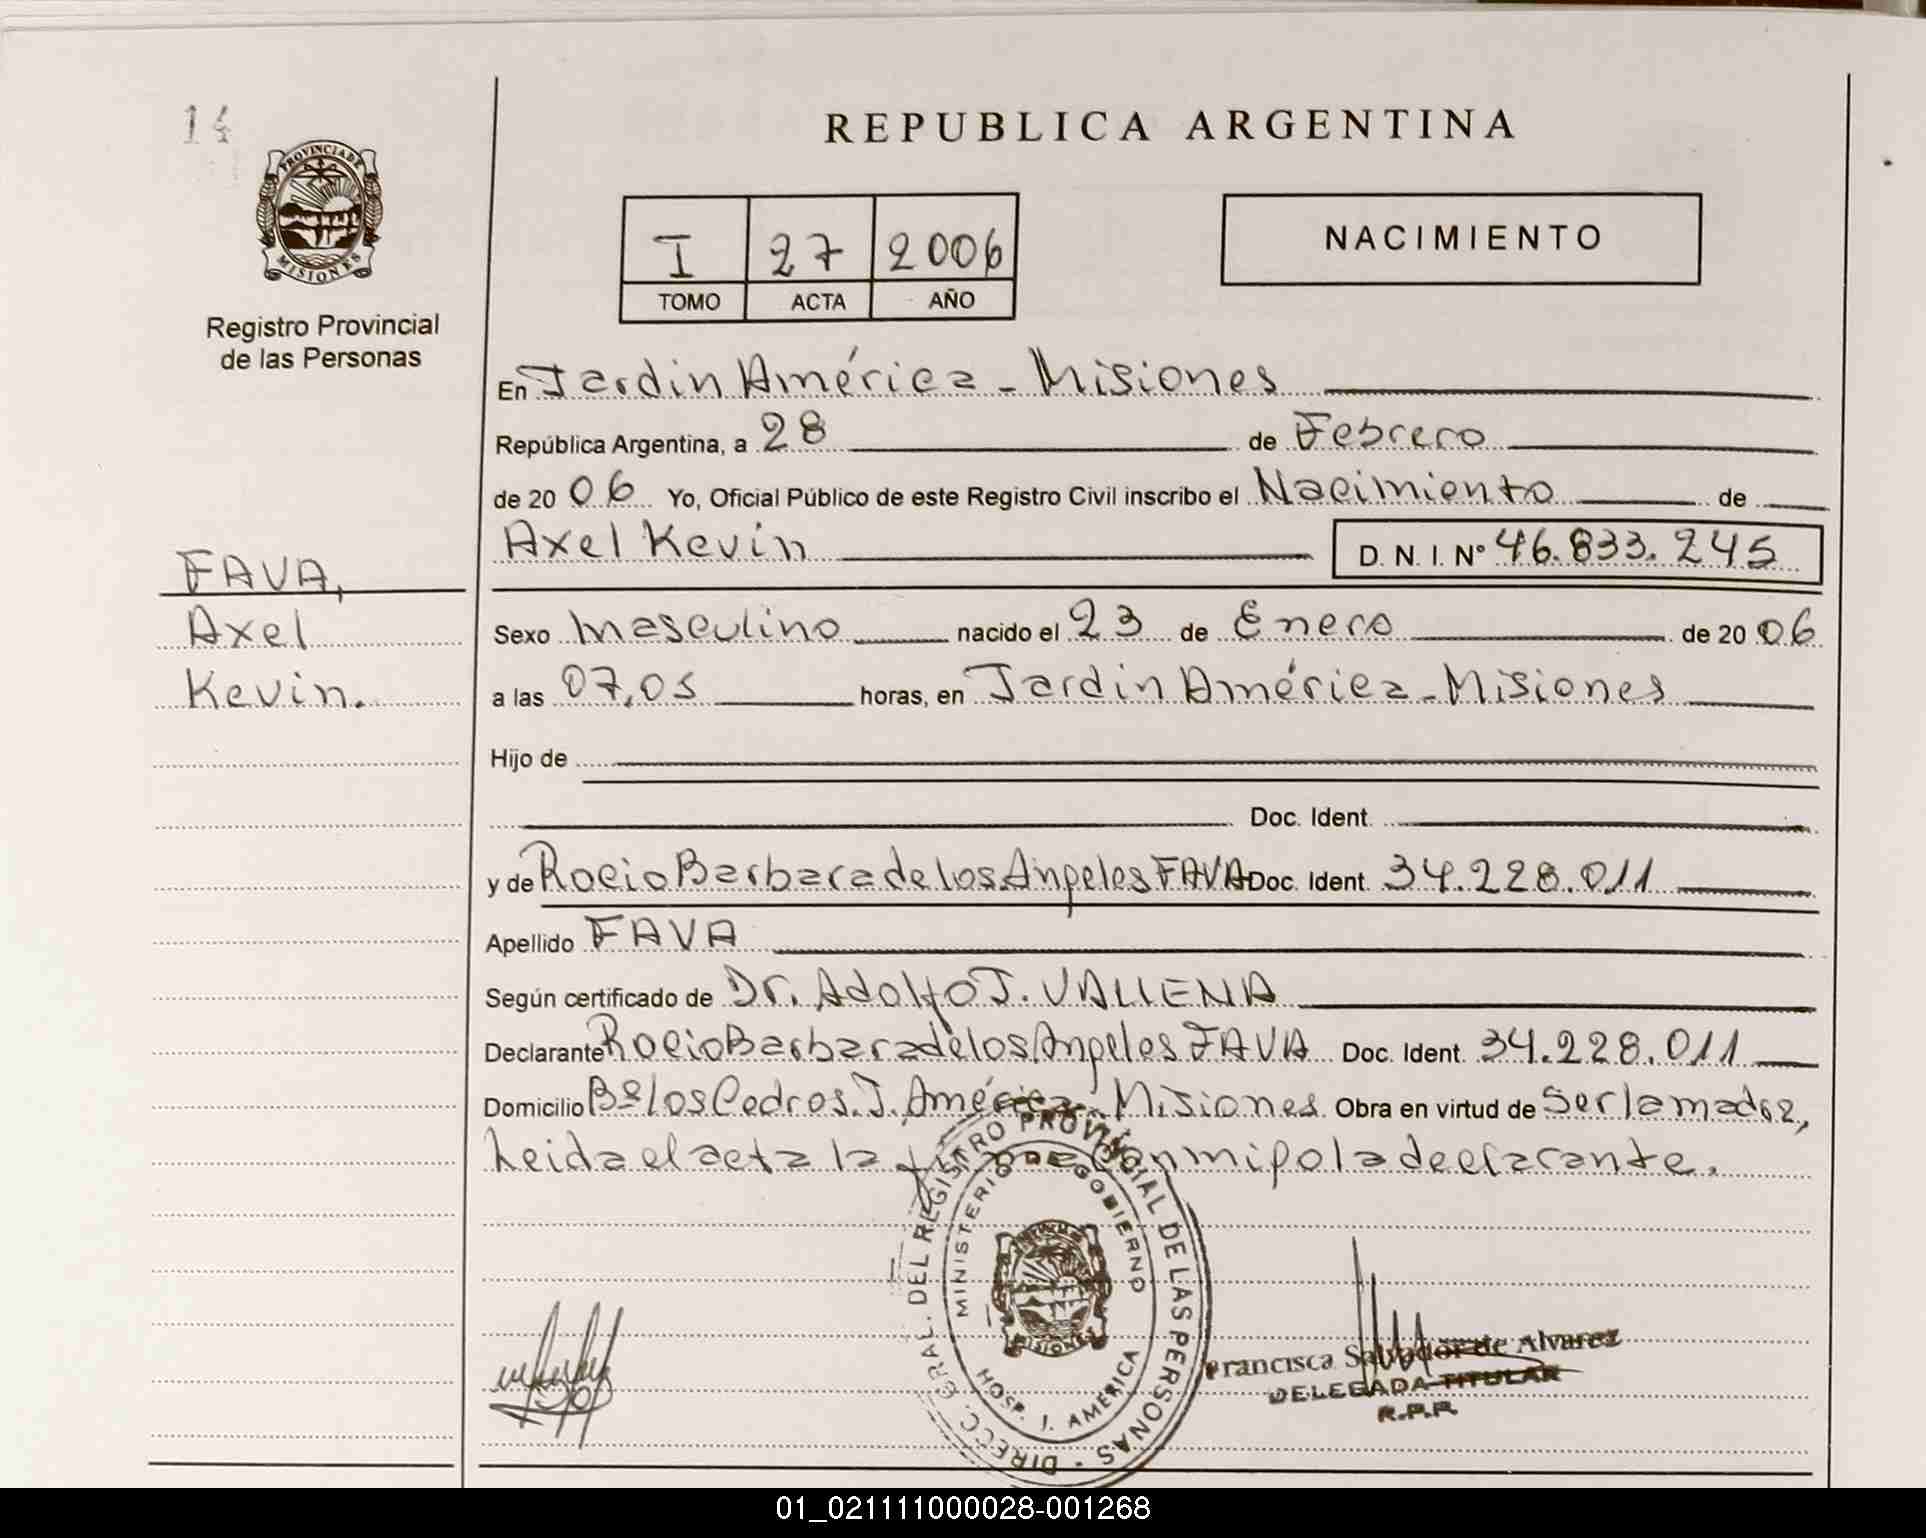 14
PROVINCIA DE
MISIONES
Registro Provincial
de las Personas
REPUBLICA ARGENTINA
I 27 2006
TOMO ACTA AÑO
NACIMIENTO
En Jardin América - Misiones
República Argentina, a 28 de Febrero
de 20 06 Yo, Oficial Público de este Registro Civil inscribo el Nacimiento de
Axel Kevin D. N. I. N° 46.833.245
FAVA,
Axel
Kevin.
Sexo Masculino nacido el 23 de Enero de 20 06
a las 07,05 horas, en Jardin América - Misiones
Hijo de
Doc. Ident.
y de Rocio Barbara de los Angeles FAVA Doc. Ident. 34.228.011
Apellido FAVA
Según certificado de Dr. Adolfo J. VALLENA
Declarante Rocio Barbara de los Angeles FAVA Doc. Ident. 34.228.011
Domicilio B° los Cedros. J. América - Misiones Obra en virtud de Ser la madre,
Leida el acta la firma con migo la declarante.
DIRECC. GRAL. DEL REGISTRO PROVINCIAL DE LAS PERSONAS
MINISTERIO DE GOBIERNO
MISIONES
HOSP. J. AMERICA
Francisca Salvador de Alvarez
DELEGADA TITULAR
R.P.P.
01_021111000028-001268